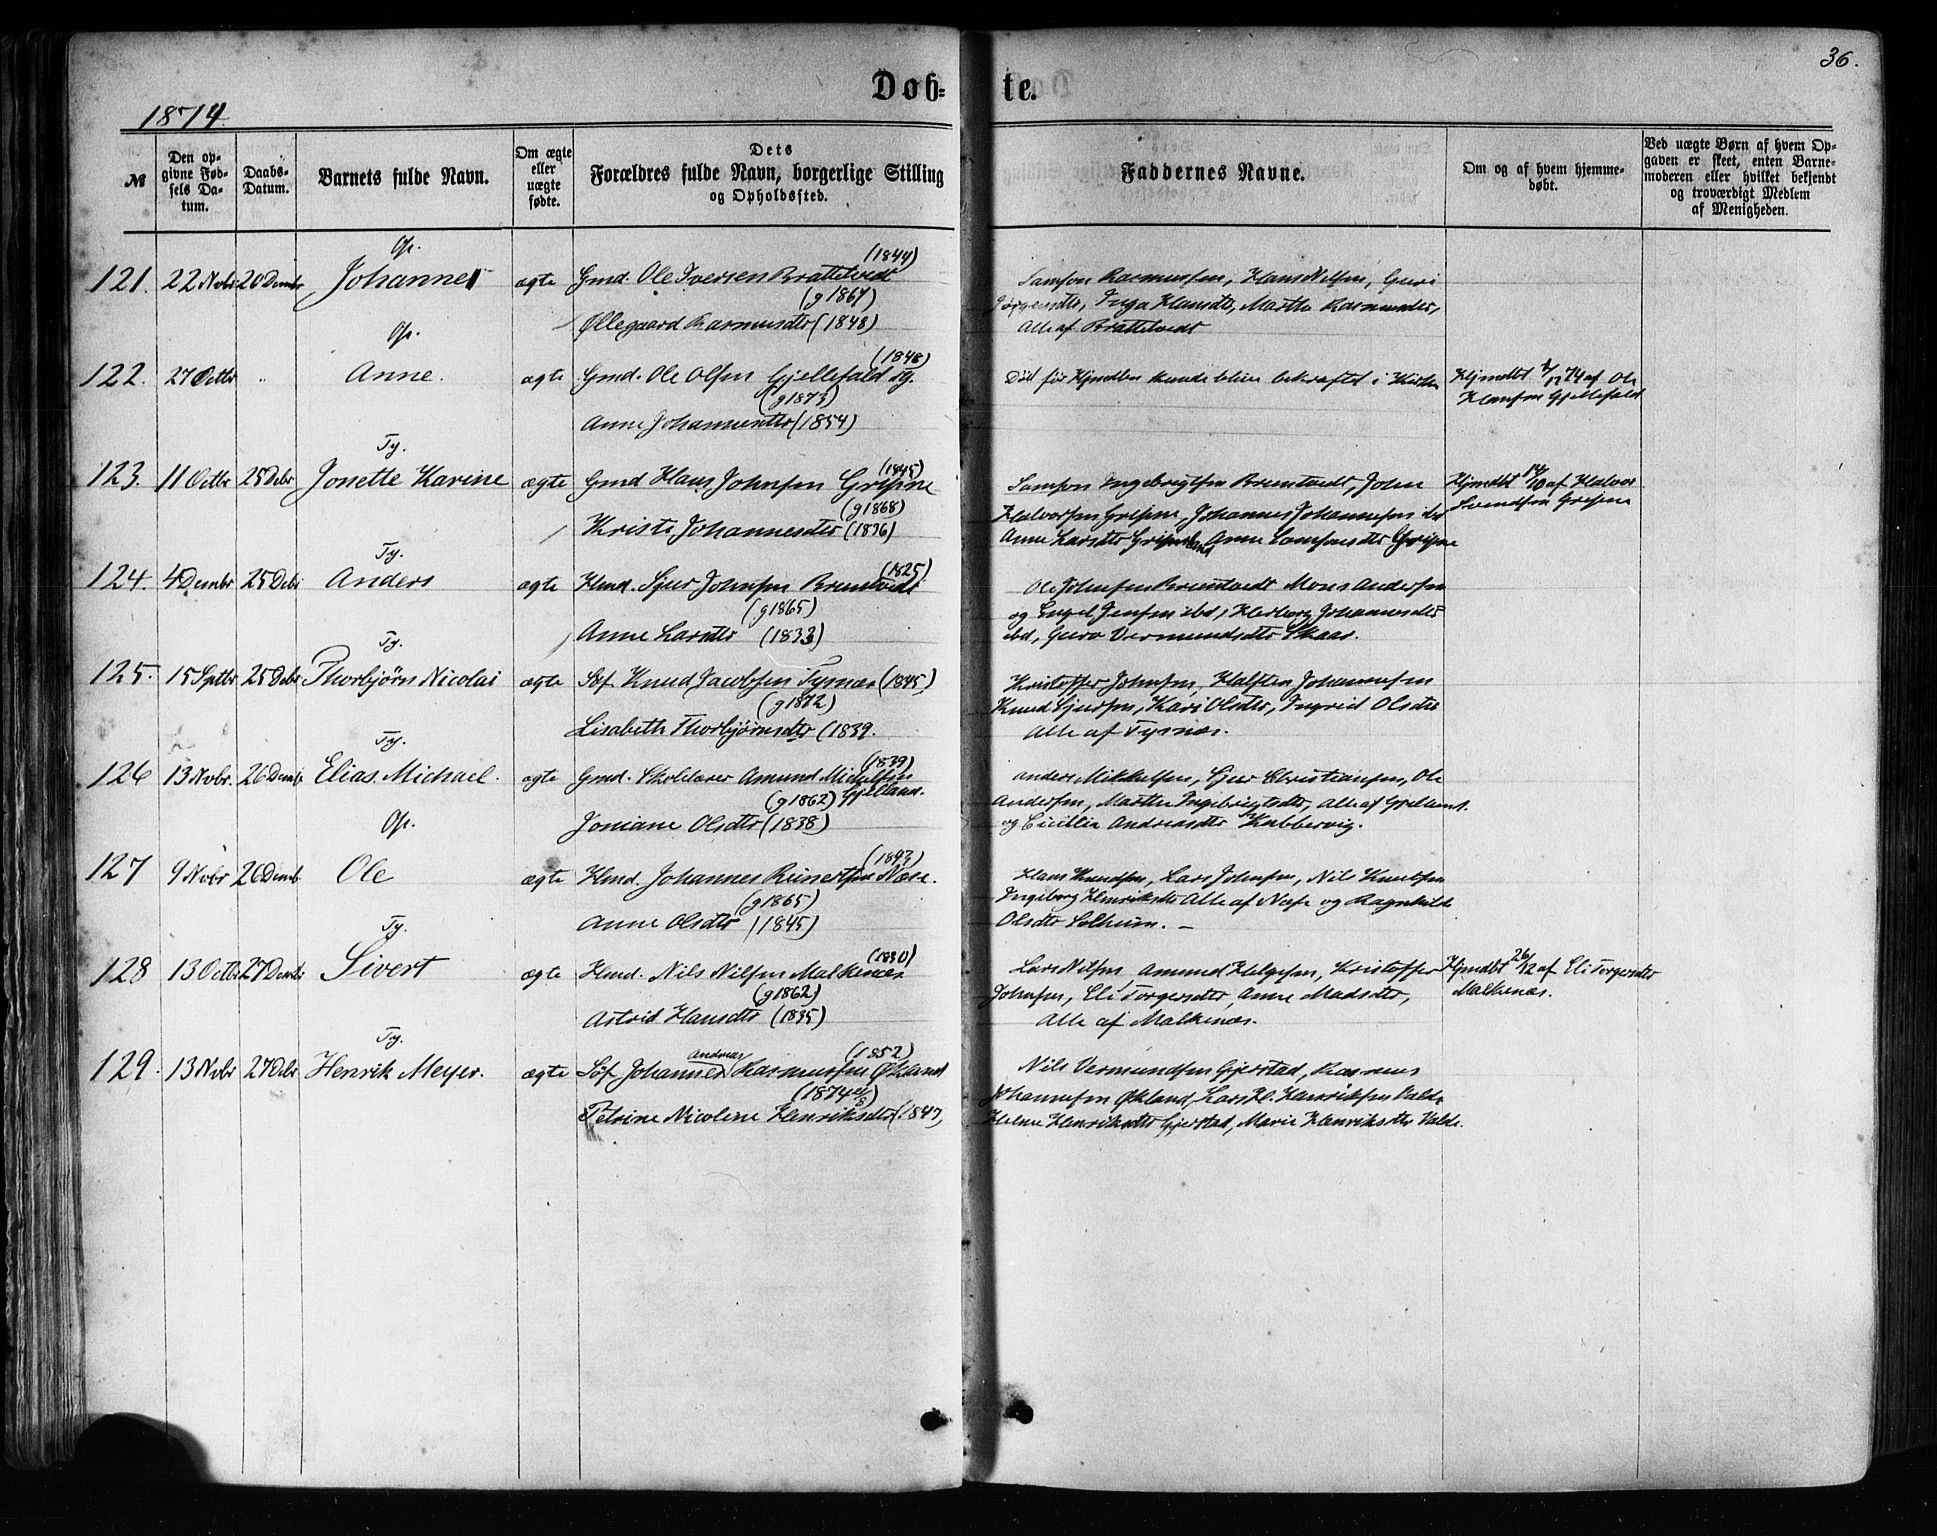 36.
Døb-
te.
1874
№
Den op-
givne Fød-
sels Da-
tum.
Daabs-
Datum.
Barnets fulde Navn.
Om ægte
eller
uægte
fødte.
Dets
Forældres fulde Navn, borgerlige Stilling
og Opholdssted.
Faddernes Navne.
Om og af hvem hjemme-
døbt.
Ved uægte Børn af hvem Op-
gaven er skeet, enten Barne-
moderen eller hvilket bekjendt
og troværdigt Medlem
af Menigheden.
Op.
121. 22 Novbr 20 Dembr Johannes ægte Gmd. Ole Iversen Brattetvedt (1844)
(g 1867)
Øllegaard Rasmusdtr (1848)
Samson Rasmussen, Hans Nilsen, Guri
Jørgensdtr, Inga Hansdtr, Martha Rasmusdtr,
Alle af Brattetvedt
Op.
122. 27 Octbr " Anne. ægte Gmd. Ole Olsen Gjellefald Ty. (1848)
(g 1873)
Anne Johannesdtr (1854)
Død før Hjmdben kunde blive bekræftet i Kirken
Hjmdbt 74 af Ole
Hansen Gjellefald
Ty.
123. 11 Octbr 25 Debr Jonette Karine ægte Gmd Hans Johnsen Gripne (1845)
(g 1868)
Kristi Johannesdtr (1836)
Samson Ingebrigtsen Brentvedt, John
Halvorsen Gripne, Johannes Johannesen ibd
Anne Larsdtr Anne Samsonsdtr Gripne
Hjmdbt af Halvor
Svendsen Gripne
Ty.
124. 4 Dembr 25 Debr Anders ægte Hmd. Sjur Johnsen Brentvedt (1825)
(g 1865)
Anne Larsdtr (1833)
Ole Johnsen Brentvedt Mons Andersen
og Engel Jensen ibd, Herborg Johannesdtr
ibd, Guro Vermundsdtr Skaar.
Ty.
125. 15 Septbr 25 Debr Thorbjørn Nicolai ægte Søf. Knud Jacobsen Tysnæs (1845)
(g 1872)
Lisabeth Thorbjørnsdtr (1839.
Kristoffer Johnsen, Halsten Johannesen
Knud Sjursen, Kari Olsdtr, Ingrid Olsdtr
Alle af Tysnæs.
Ty.
126 13 Novbr. 26 Demb Elias Michael. ægte Gmd. Skolelærer Amund Mickelsen (1839)
(g 1862) Gjelland.
Joniane Olsdtr (1838)
Anders Mikkelsen, Sjur Christiansen, Ole
Andersen, Marthe Ingebrigtsdtr, Alle af Gjelland.
og Cicillia Andreasdtr Kubbervig.
Op.
127 9 Novbr 26 Demb Ole ægte Hmd. Johannes Reinertsen Næse. (1843)
(g 1865)
Anne Olsdtr (1845)
Hans Knudsen, Lars Johnsen, Nils Knudsen
Ingeborg Henriksdtr Alle af Nese og Ragnhilde
Olsdtr Solheim. —
Ty.
128 13 Octbr 27 Dembr Sivert ægte Hmd. Nils Nilsen Malkenæs (1830)
(g 1862)
Astrid Hansdtr (1835)
Lars Nilsen, Amund Helgesen, Kristoffer
Johnsen, Eli Torgersdtr, Anne Madsdtr,
Alle af Malkenæs.
Hjmdbt 26/12 af Eli Torgersdtr
Malkenæs.
Ty.
129. 13 Novbr 27 Debr Henrik Meyer. ægte Søf. Johannes Andreas Rasmussen Økland (1852)
(1874
Petrine Nicoline Henriksdtr (1847)
Nils Vermundsen Gjerstad, Rasmus
Johannesen Økland, Lars H. Henriksen Valde
Helene Henriksdtr Gjerstad, Marie Henriksdtr Valde.